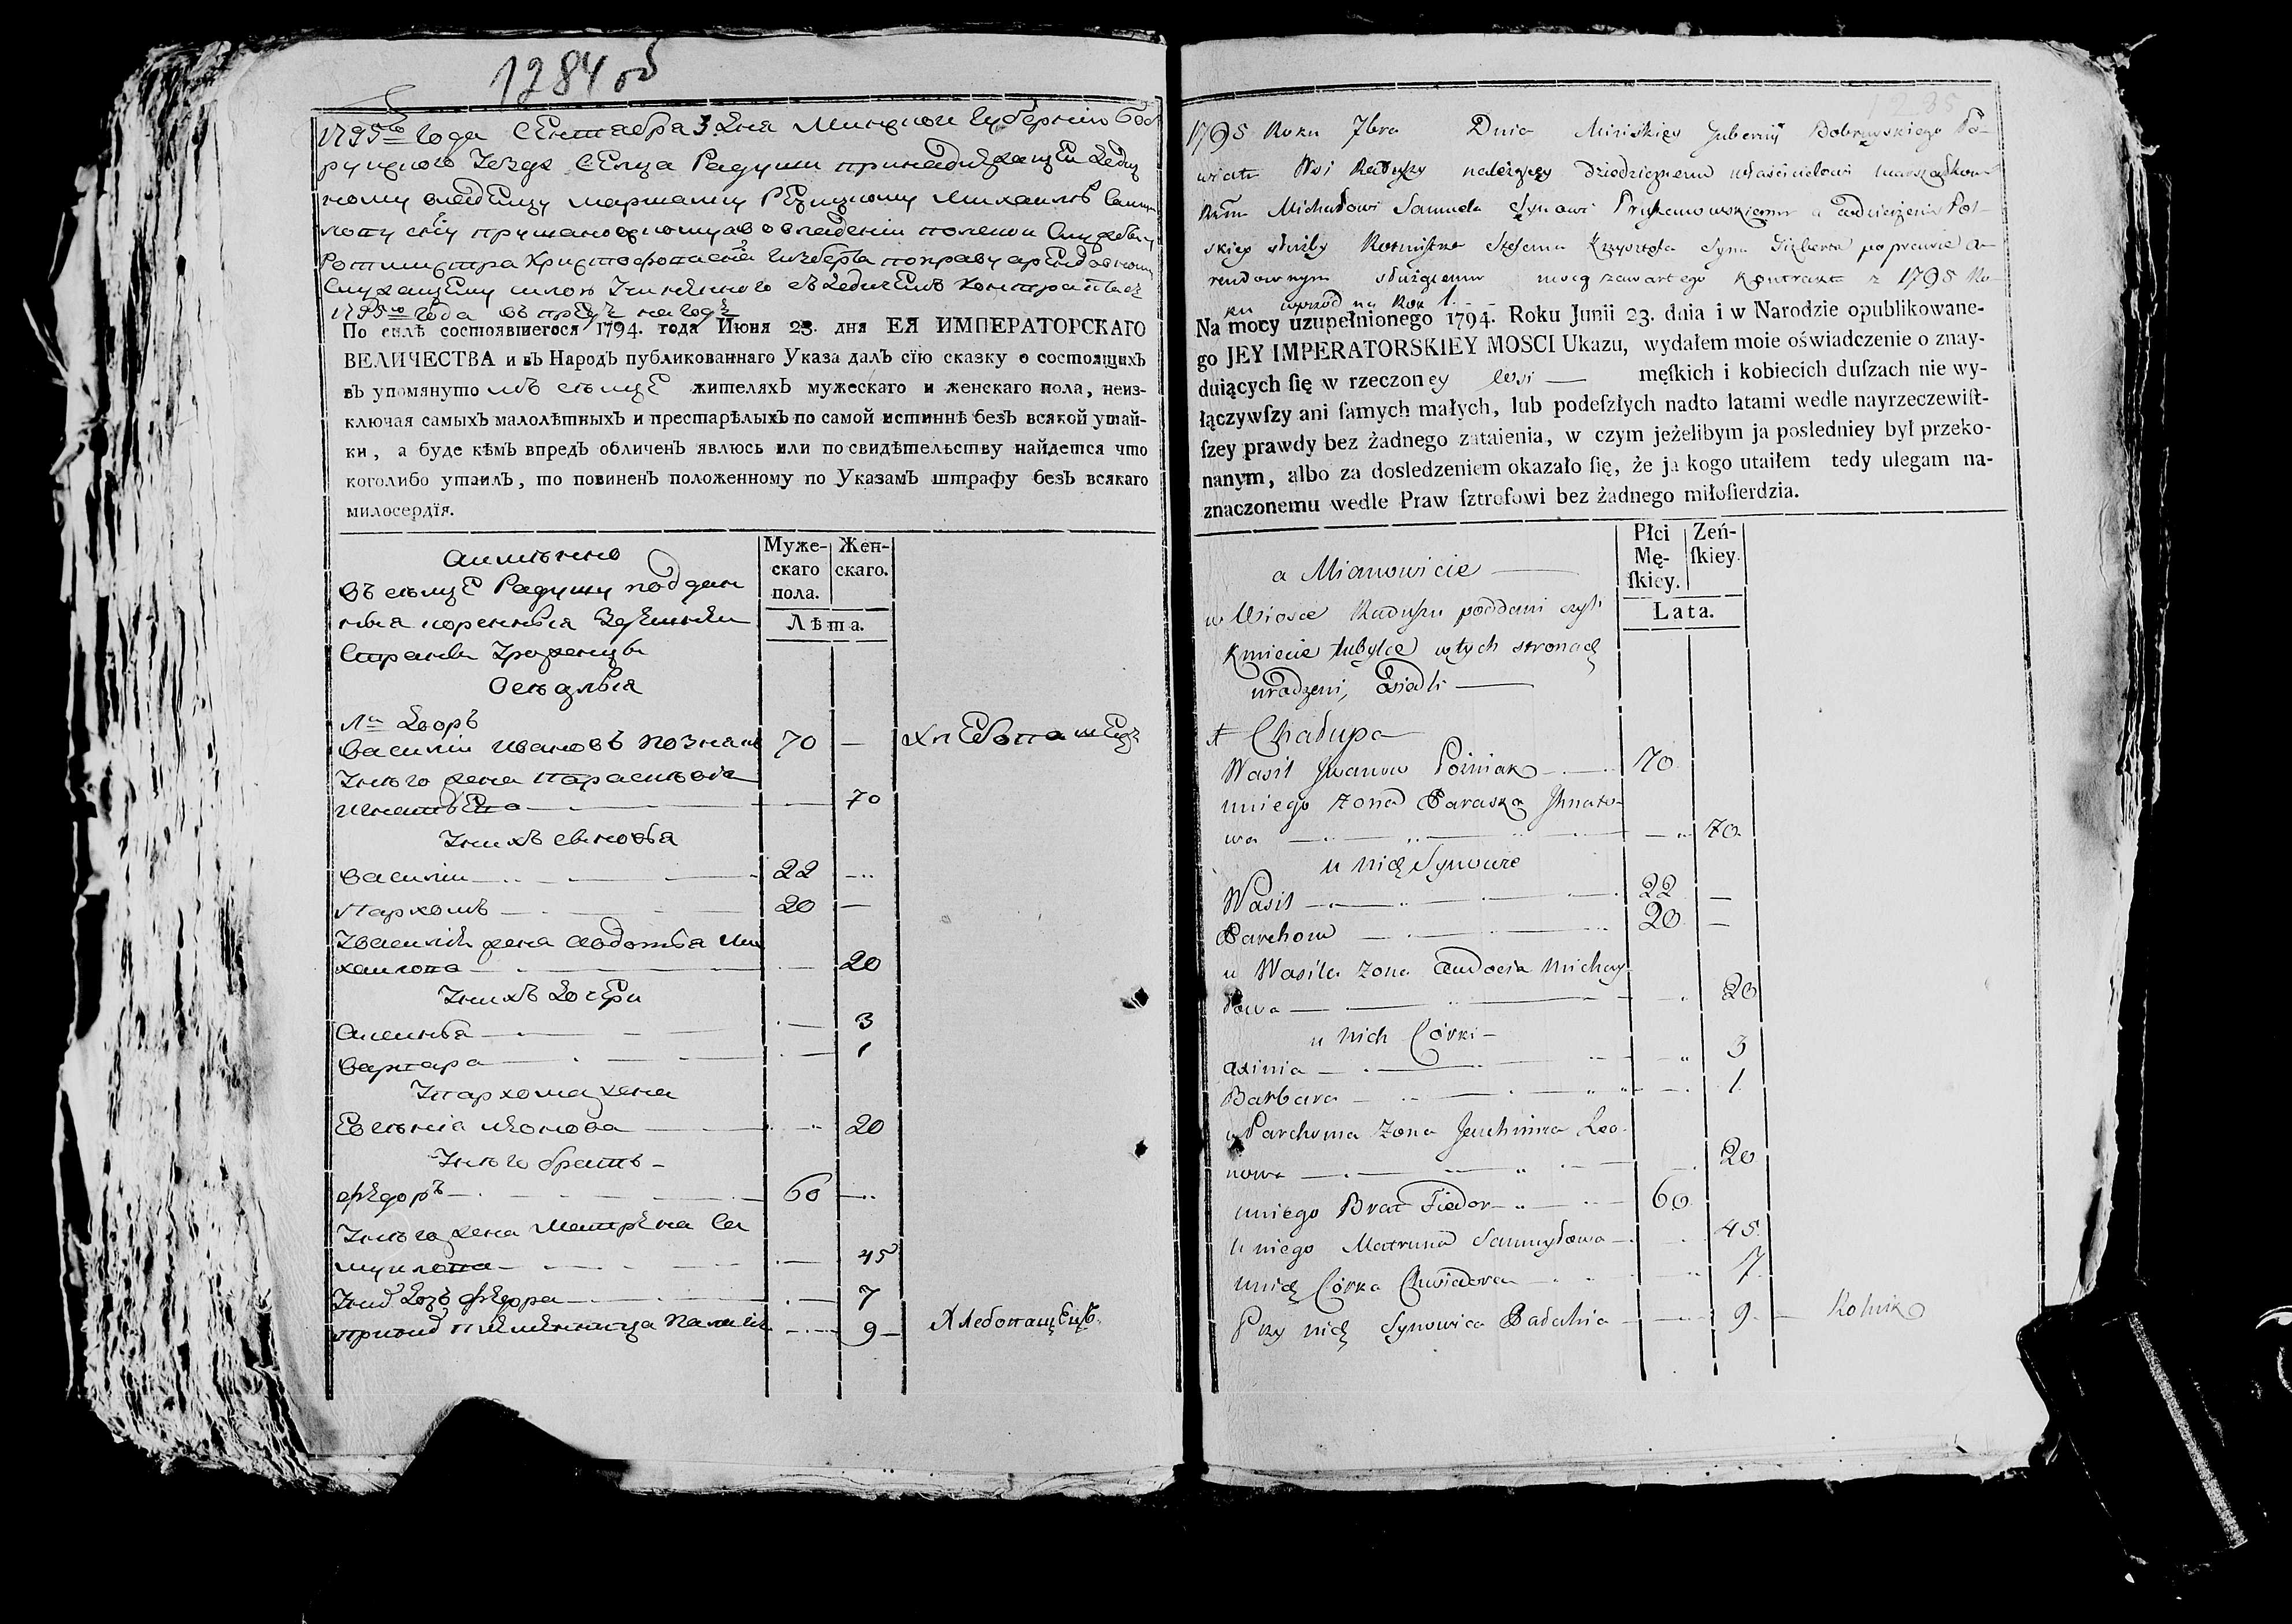 1284 об
1795го года Сентабра 3 дня Минской Губерніи Боб
руцкого уезда селца Радуши принадлежащей
ному владелцу маршалку Речицкому Михаилу Самуй
лову сну во владеніи полской службы
Ротмистра Христофорова сна Гизберта по праву арендовному
служащему контракта
1795го года въ предъ на годъ
По силѣ состоявшегося 1794. года Июня 23. дня ЕЯ ИМПЕРАТОРСКАГО
ВЕЛИЧЕСТВА и въ Народъ публикованнаго Указа далъ сїю сказку о состоящихъ
въ упомянуто мъ селцѣ жителяхъ мужескаго и женскаго пола, неиз-
ключая самыхъ малолѣтныхъ и престарѣлыхъ по самой истиннѣ безъ всякой утай-
ки, а буде кѣмъ впредъ обличенъ явлюсь или по свидѣтельству найдется что
коголибо утаилъ, то повиненъ положенному по Указамъ штрафу безъ всякаго
милосердїя.
а имѣнно
Муже-скаго пола.
Жен-скаго.
Лѣта.
Въ селцѣ Радушу поддан
ныя коренныя здешнеи
страны уроженцы
оседлыя
1й дворъ
Василіи Ивановъ Познякъ 70 — хлебопашецъ
У него жена Парасковія
Игнатьева — 70
У нихъ сыновья
Василіи — 22 —
Пархомъ — 20 —
У Василія жена Авдотья Ми
хаилова — 20
У нихъ дочери
Аксинья — 3
Варвара — 1
У Пархома жена
20
У него братъ —
Ѳедоръ — 60 —
У него жена Матрена Са
муилова — 45
7
При них племенница 9 — Хлебопашецъ.
1285
1795 Roku 7bra Dnia Minskiey Gubernij Bobruyskiego Po-
wiatu Wsi Raduszy należącey dziedzicznemu właścicielowi marszałkowi
Michałowi Samuela Synowi Pol-
skiey służby Rotmistra Krzysztofa Syna Gizberta po prawie a-
rendownym służącemu mocą zawartego kontraktu z 1795 Ro-
ku wprzód na Rok 1. - -
Na mocy uzupełnionego 1794. Roku Junii 23. dnia i w Narodzie opublikowane-
go JEY IMPERATORSKIEY MOSCI Ukazu, wydałem moie oświadczenie o znay-
duiących ſię w rzeczoney wsi — męſkich i kobiecich duſzach nie wy-
łączywſzy ani ſamych małych, lub podeſzłych nadto latami wedle nayrzeczewiſt-
ſzey prawdy bez żadnego zataienia, w czym jeżelibym ja posledniey był przeko-
nanym, albo za dosledzeniem okazało ſię, że ja kogo utaiłem tedy ulegam na-
znaczonemu wedle Praw ſztrofowi bez żadnego miłoſierdzia.
a Mianowicie —
Płci Mę-ſkiey.
Zeń-ſkiey.
Lata.
w Wiosce Raduszu poddani czyli
kmiecie tubylce w tych stronach
urodzeni, Osiedli —
1 Chałupa
Wasil Jwanow Pozniak — 70
u niego zona Paraska Jhnato-
wa — 70
u nich Synowie
Wasil — 22 —
Parchom — 20 —
u Wasila zona Audocia Michay
łowa — 20
u nich Córki —
axinia — 3
Barbara — 1
u Parchoma zona Leo-
nowa — 20
u niego Brat Fiedor — 60
u niego Matruna Samuyłowa — 45
u nich Córka — 7
Przy nich Synowica — 9 — Rolnik